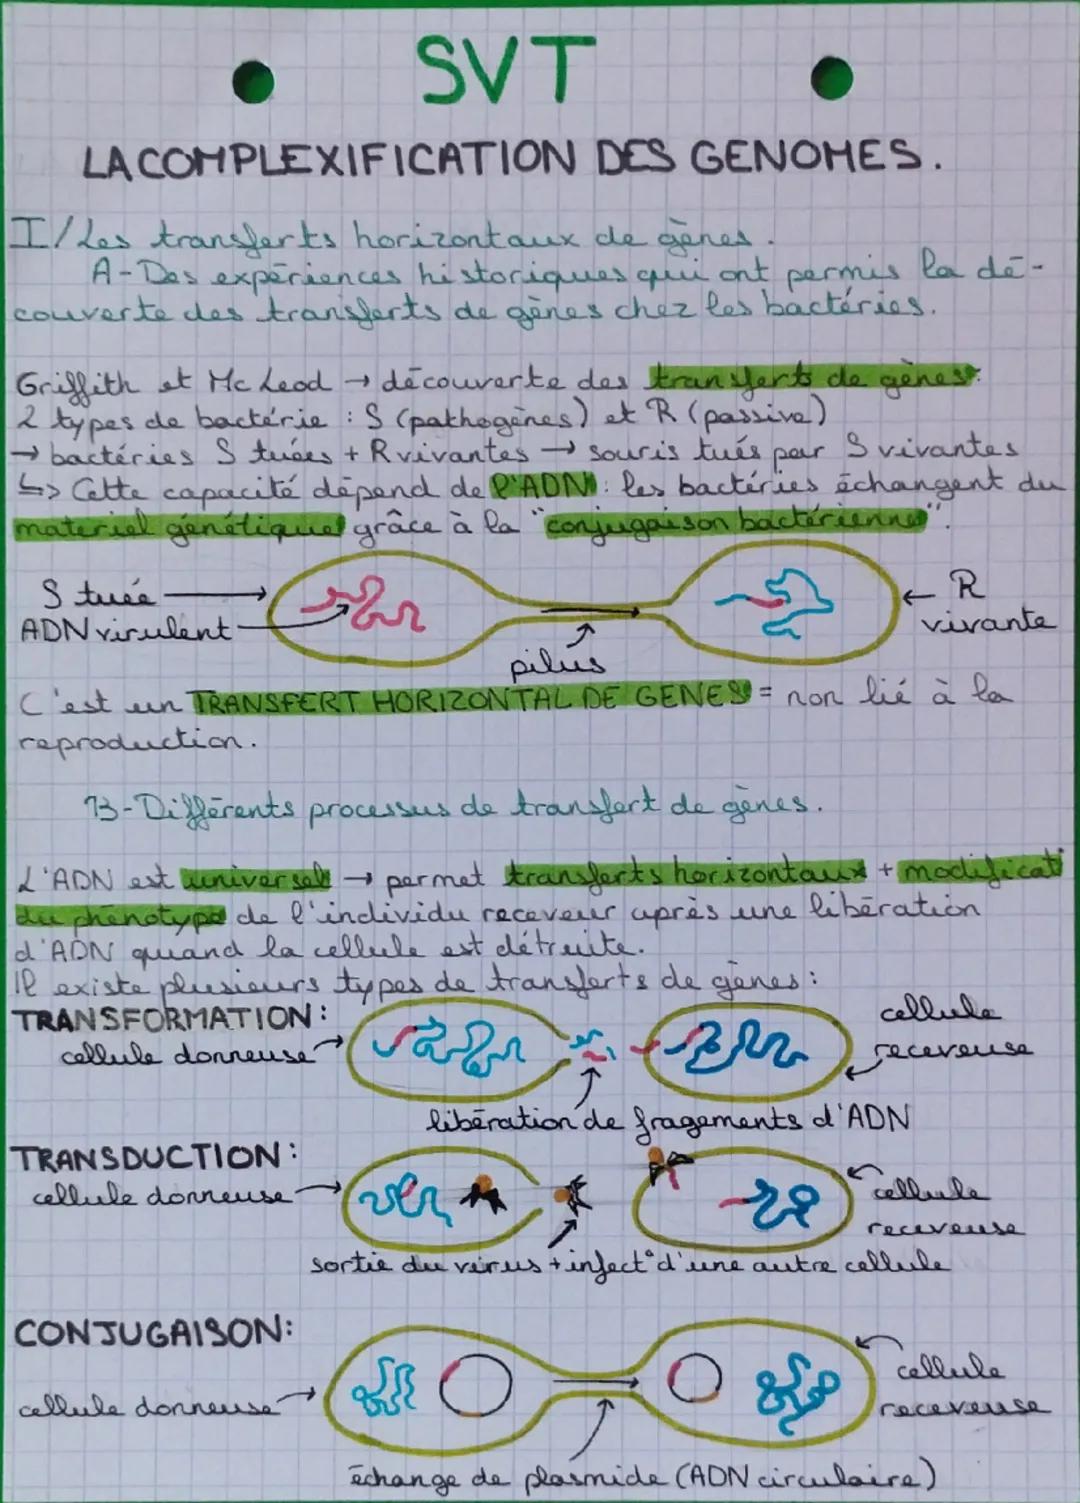 SVT
LA COMPLEXIFICATION DES GENOMES.
I/ Les transferts horizontaux de gènes.
A - Des expériences historiques qui ont permis la dé-
couverte des transferts de gènes chez les bactéries.
Griffith et Mc Leod → découverte des transferts de gènes.
2 types de bactérie : S (pathogènes) et R (passive)
→ bactéries S tuées + R vivantes → souris tués par S vivantes
↳ Cette capacité dépend de l'ADN : les bactéries échangent du
materiel génétique grâce à la "conjugaison bactérienne".
S tuée
R
ADN virulent
vivante
pilus
C'est un TRANSFERT HORIZONTAL DE GENES = non lié à la
reproduction.
B - Différents processus de transfert de gènes.
L'ADN est universel → permet transferts horizontaux + modificat°
du phénotype de l'individu receveur après une libération
d'ADN quand la cellule est détruite.
Il existe plusieurs types de transferts de gènes :
TRANSFORMATION :
cellule
cellule donneuse
receveuse
libération de fragements d'ADN
TRANSDUCTION :
cellule donneuse
cellule
receveuse
sortie du virus + infect° d'une autre cellule
CONJUGAISON:
cellule
cellule donneuse
receveuse
échange de plasmide (ADN circulaire)